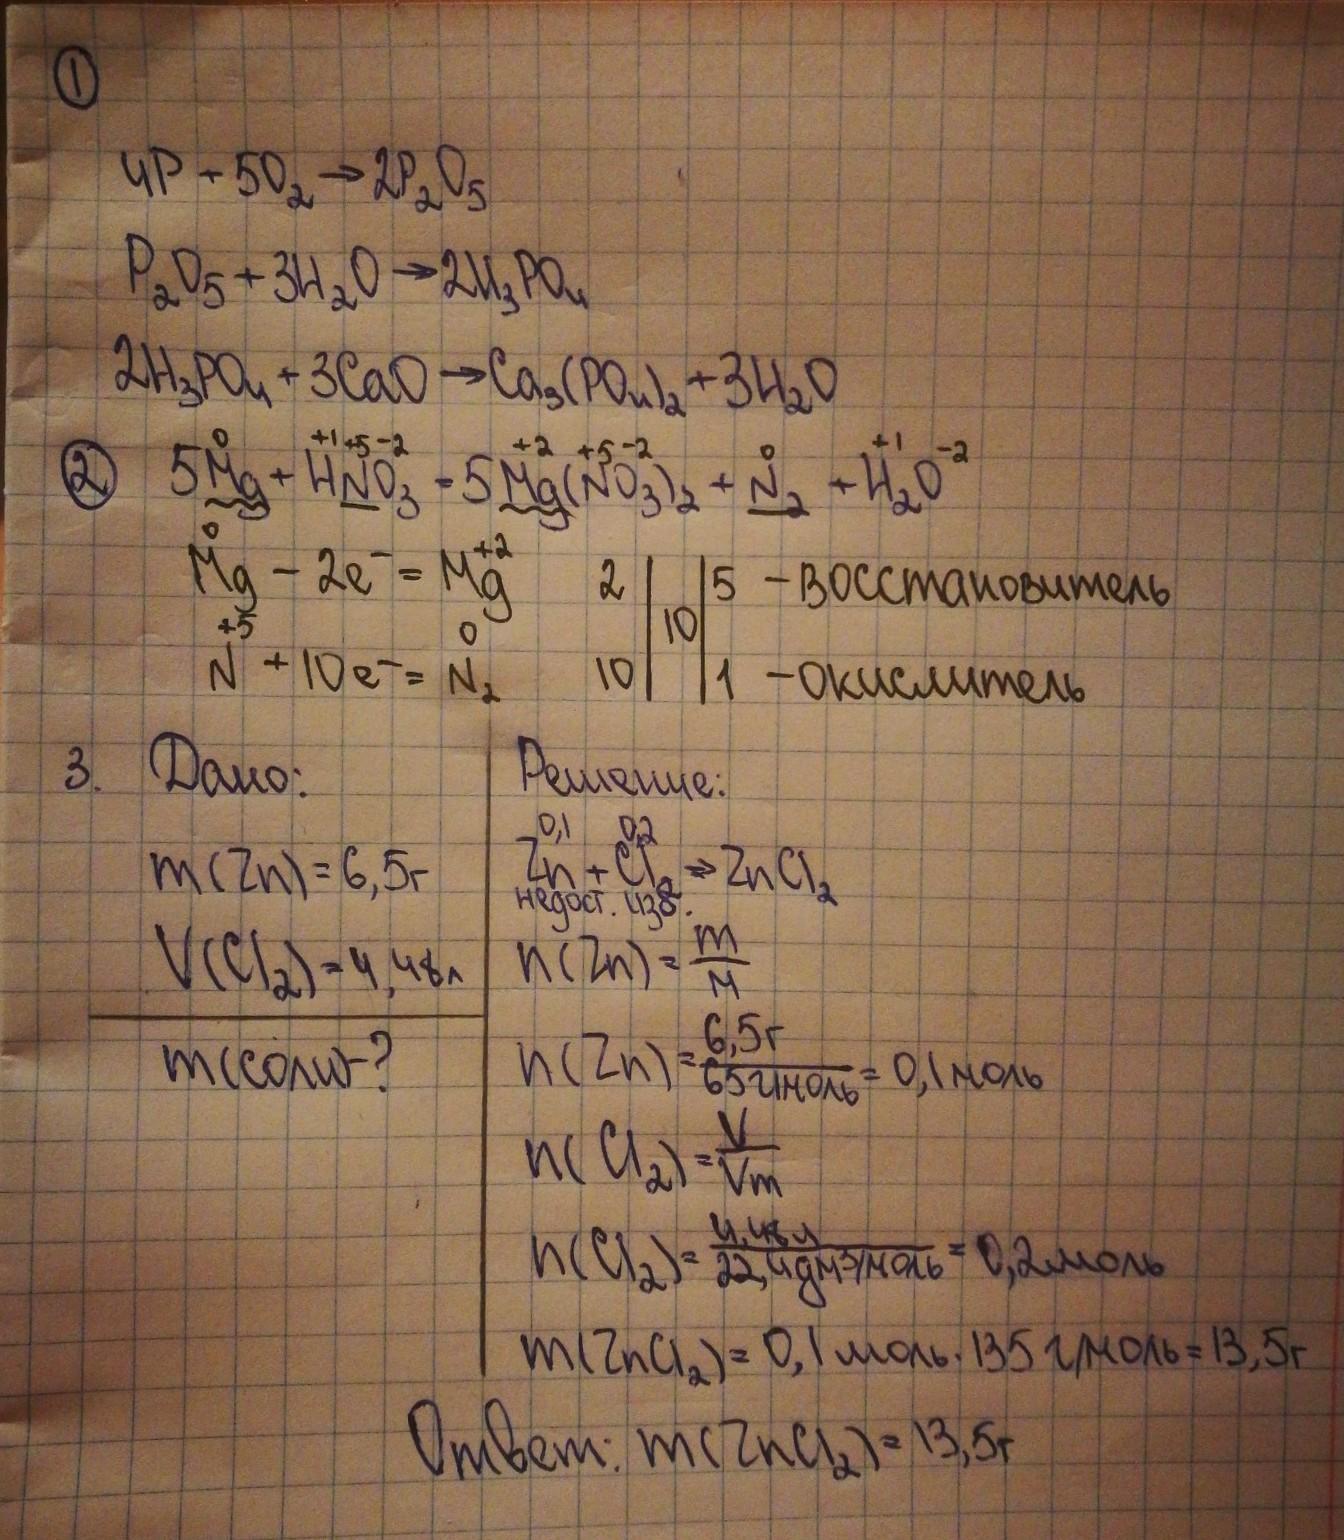 1
4P + 5O₂ → 2P₂O₅
P₂O₅ + 3H₂O → 2H₃PO₄
2H₃PO₄ + 3CaO → Ca₃(PO₄)₂ + 3H₂O
0 +1 +5 -2 +2 +5 -2 0 +1 -2
2 5Mg + HNO₃ = 5Mg(NO₃)₂ + N₂ + H₂O
0 +2
Mg - 2e⁻ = Mg 2 | | 5 - восстановитель
+5 0 10
N + 10e⁻ = N₂ 10 | | 1 - окислитель
3. Дано:
m(Zn) = 6,5г
V(Cl₂) = 4,48л
m(соли) - ?
Решение:
0,1 0,2
Zn + Cl₂ → ZnCl₂
недост. изб.
n(Zn) = m/M
n(Zn) = 6,5г/65г/моль = 0,1 моль
n(Cl₂) = V/Vm
n(Cl₂) = 4,48л/22,4дм³/моль = 0,2 моль
m(ZnCl₂) = 0,1 моль · 135 г/моль = 13,5г
Ответ: m(ZnCl₂) = 13,5г